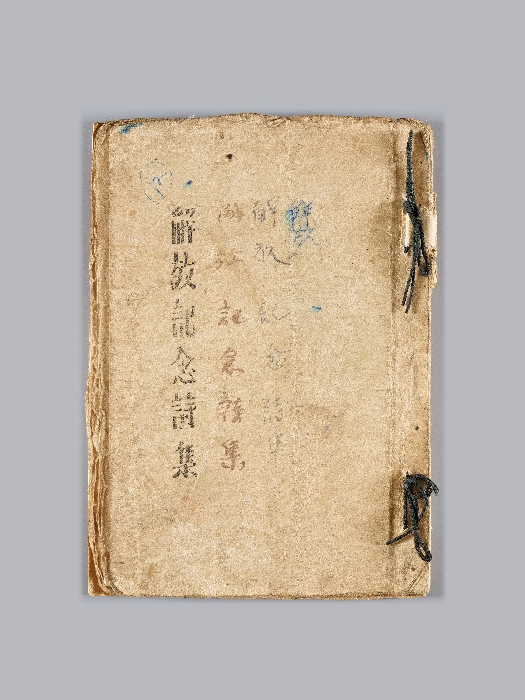 解放
解放記念詩集
解放記念集
解放記念詩集